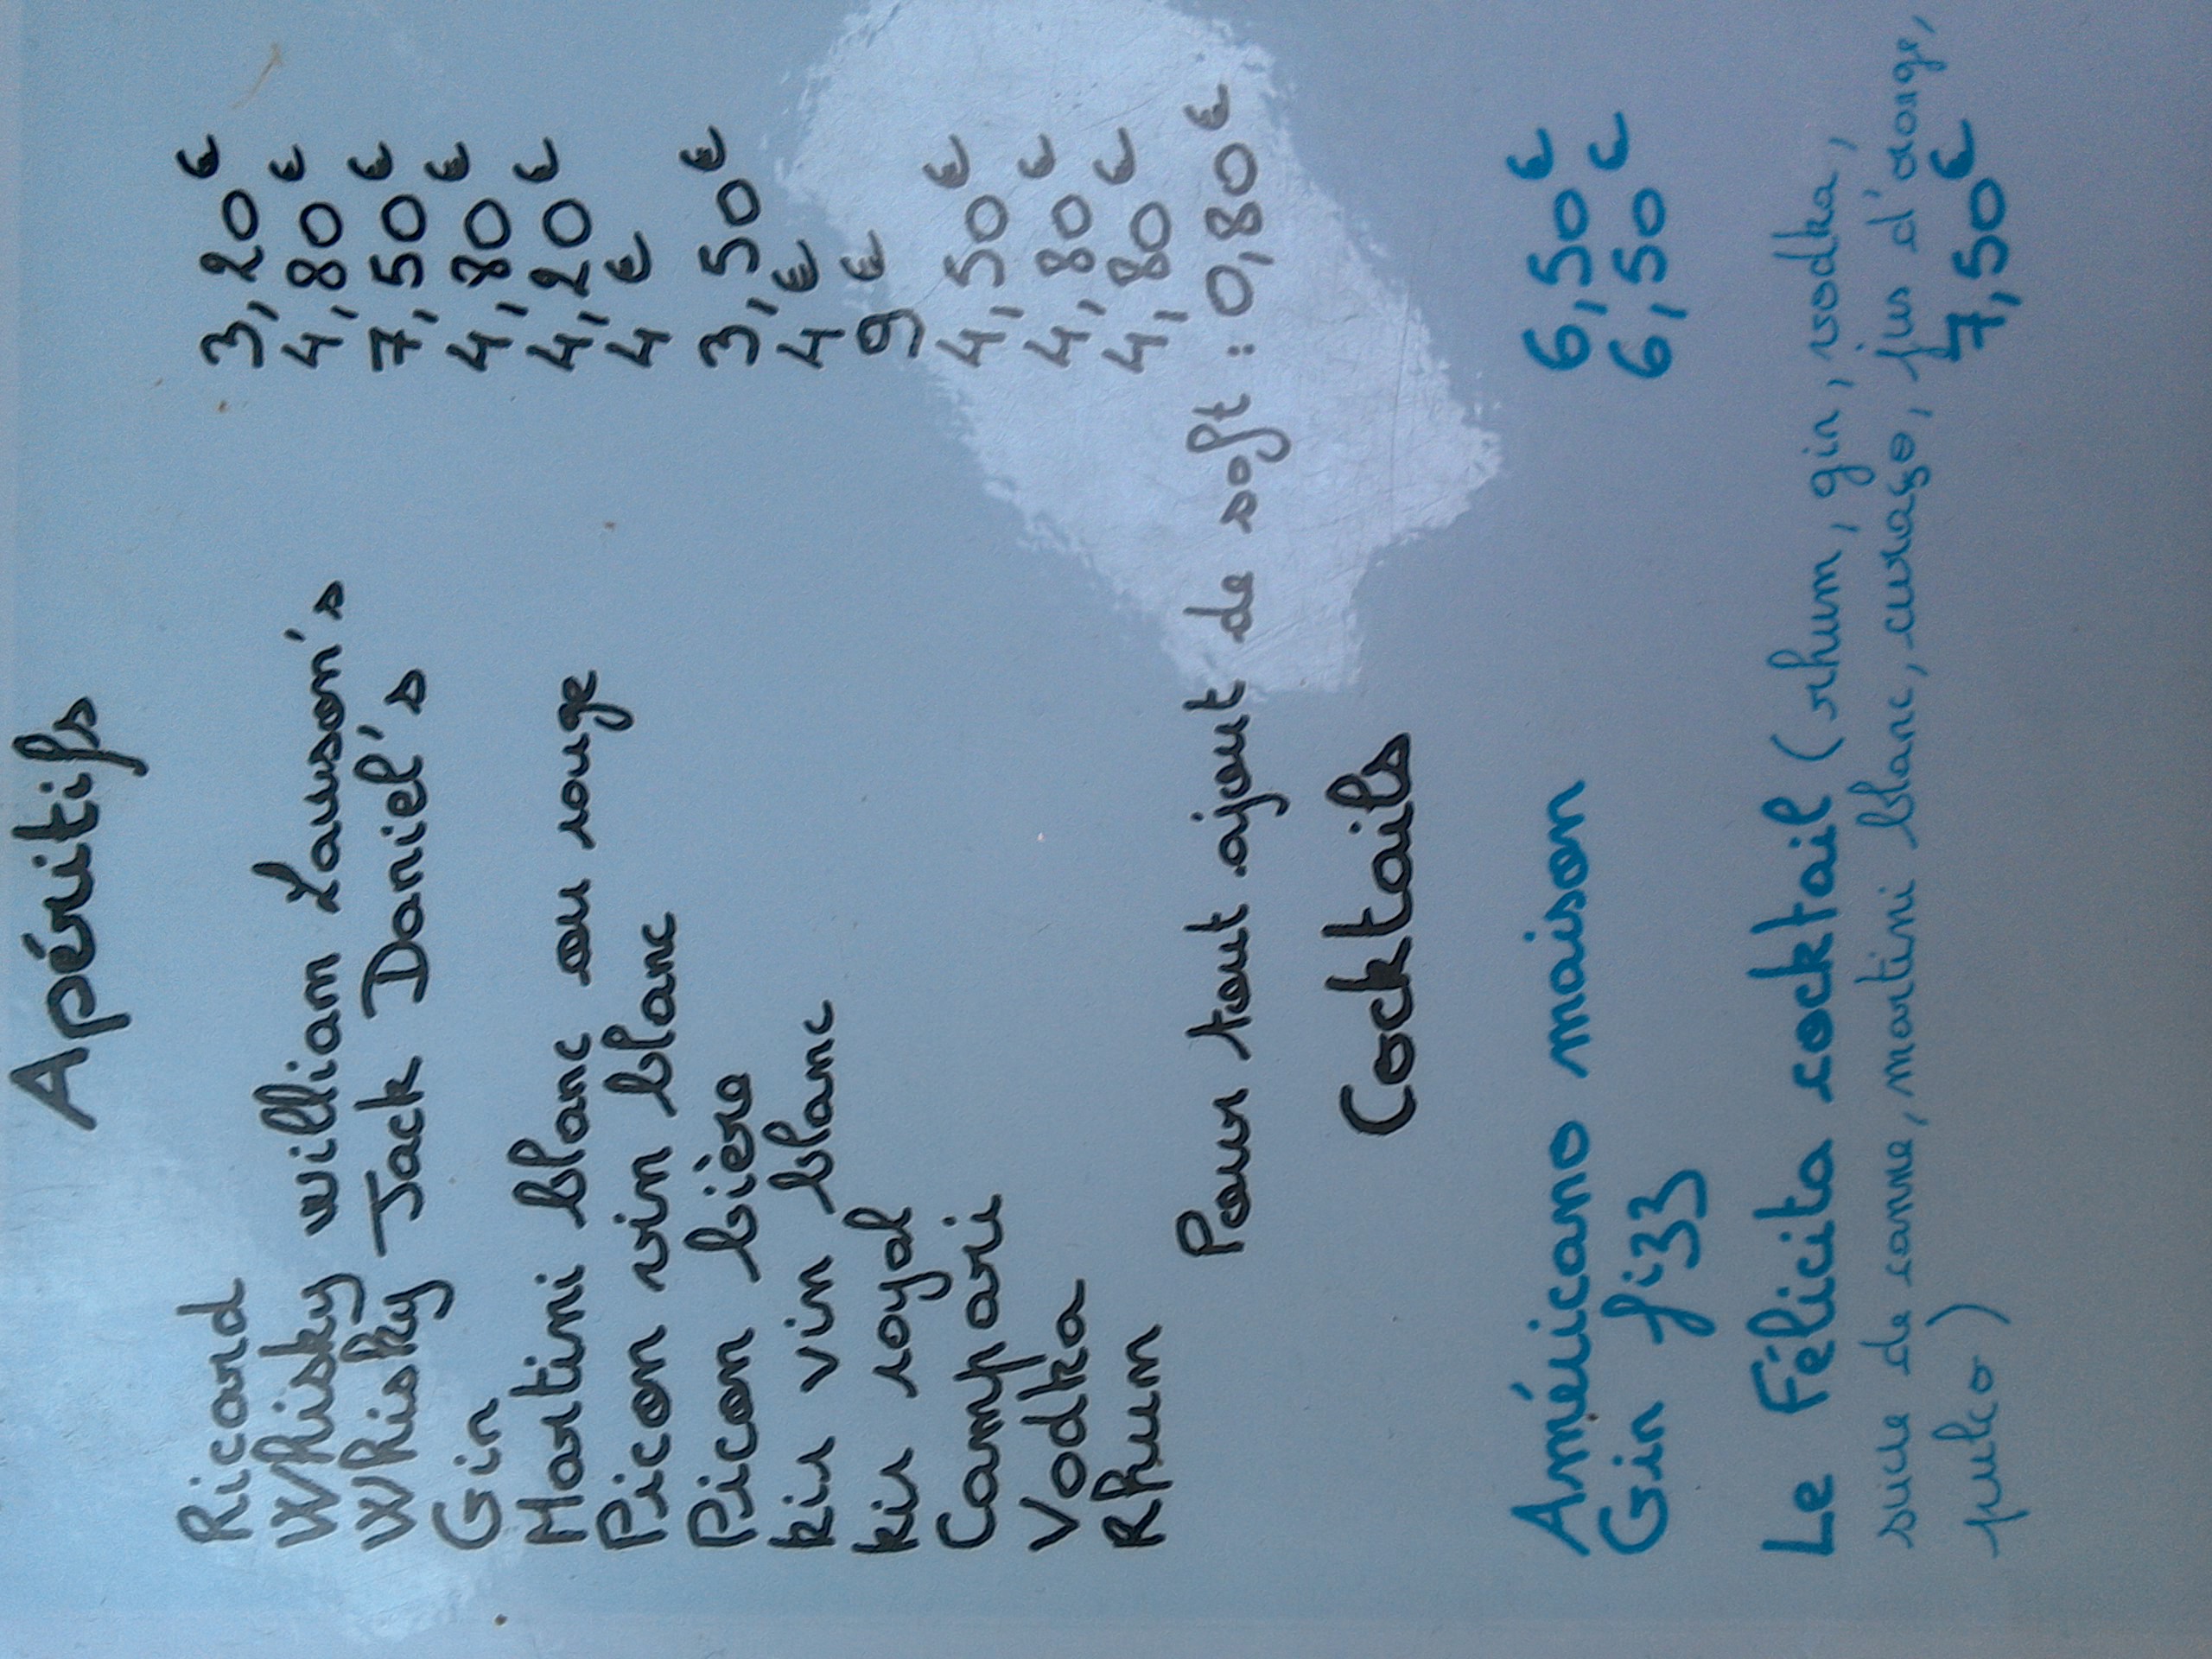 Apéritifs
Ricard 3,20€
Whisky william Lawson's 4,80€
Whisky Jack Daniel's 7,50€
Gin 4,80€
Martini blanc ou rouge 4,20€
Picon vin blanc 4€
Picon bière 3,50€
kir vin blanc 4€
kir royal 9€
Campari 4,50€
Vodka 4,80€
Rhum 4,80€
Pour tout ajout de soft : 0,80€
Cocktails
Américano maison 6,50€
Gin fizz 6,50€
Le Félicita cocktail (rhum, gin, vodka,
sucre de canne, martini blanc, curaço, jus d'orange,
pulco) 7,50€